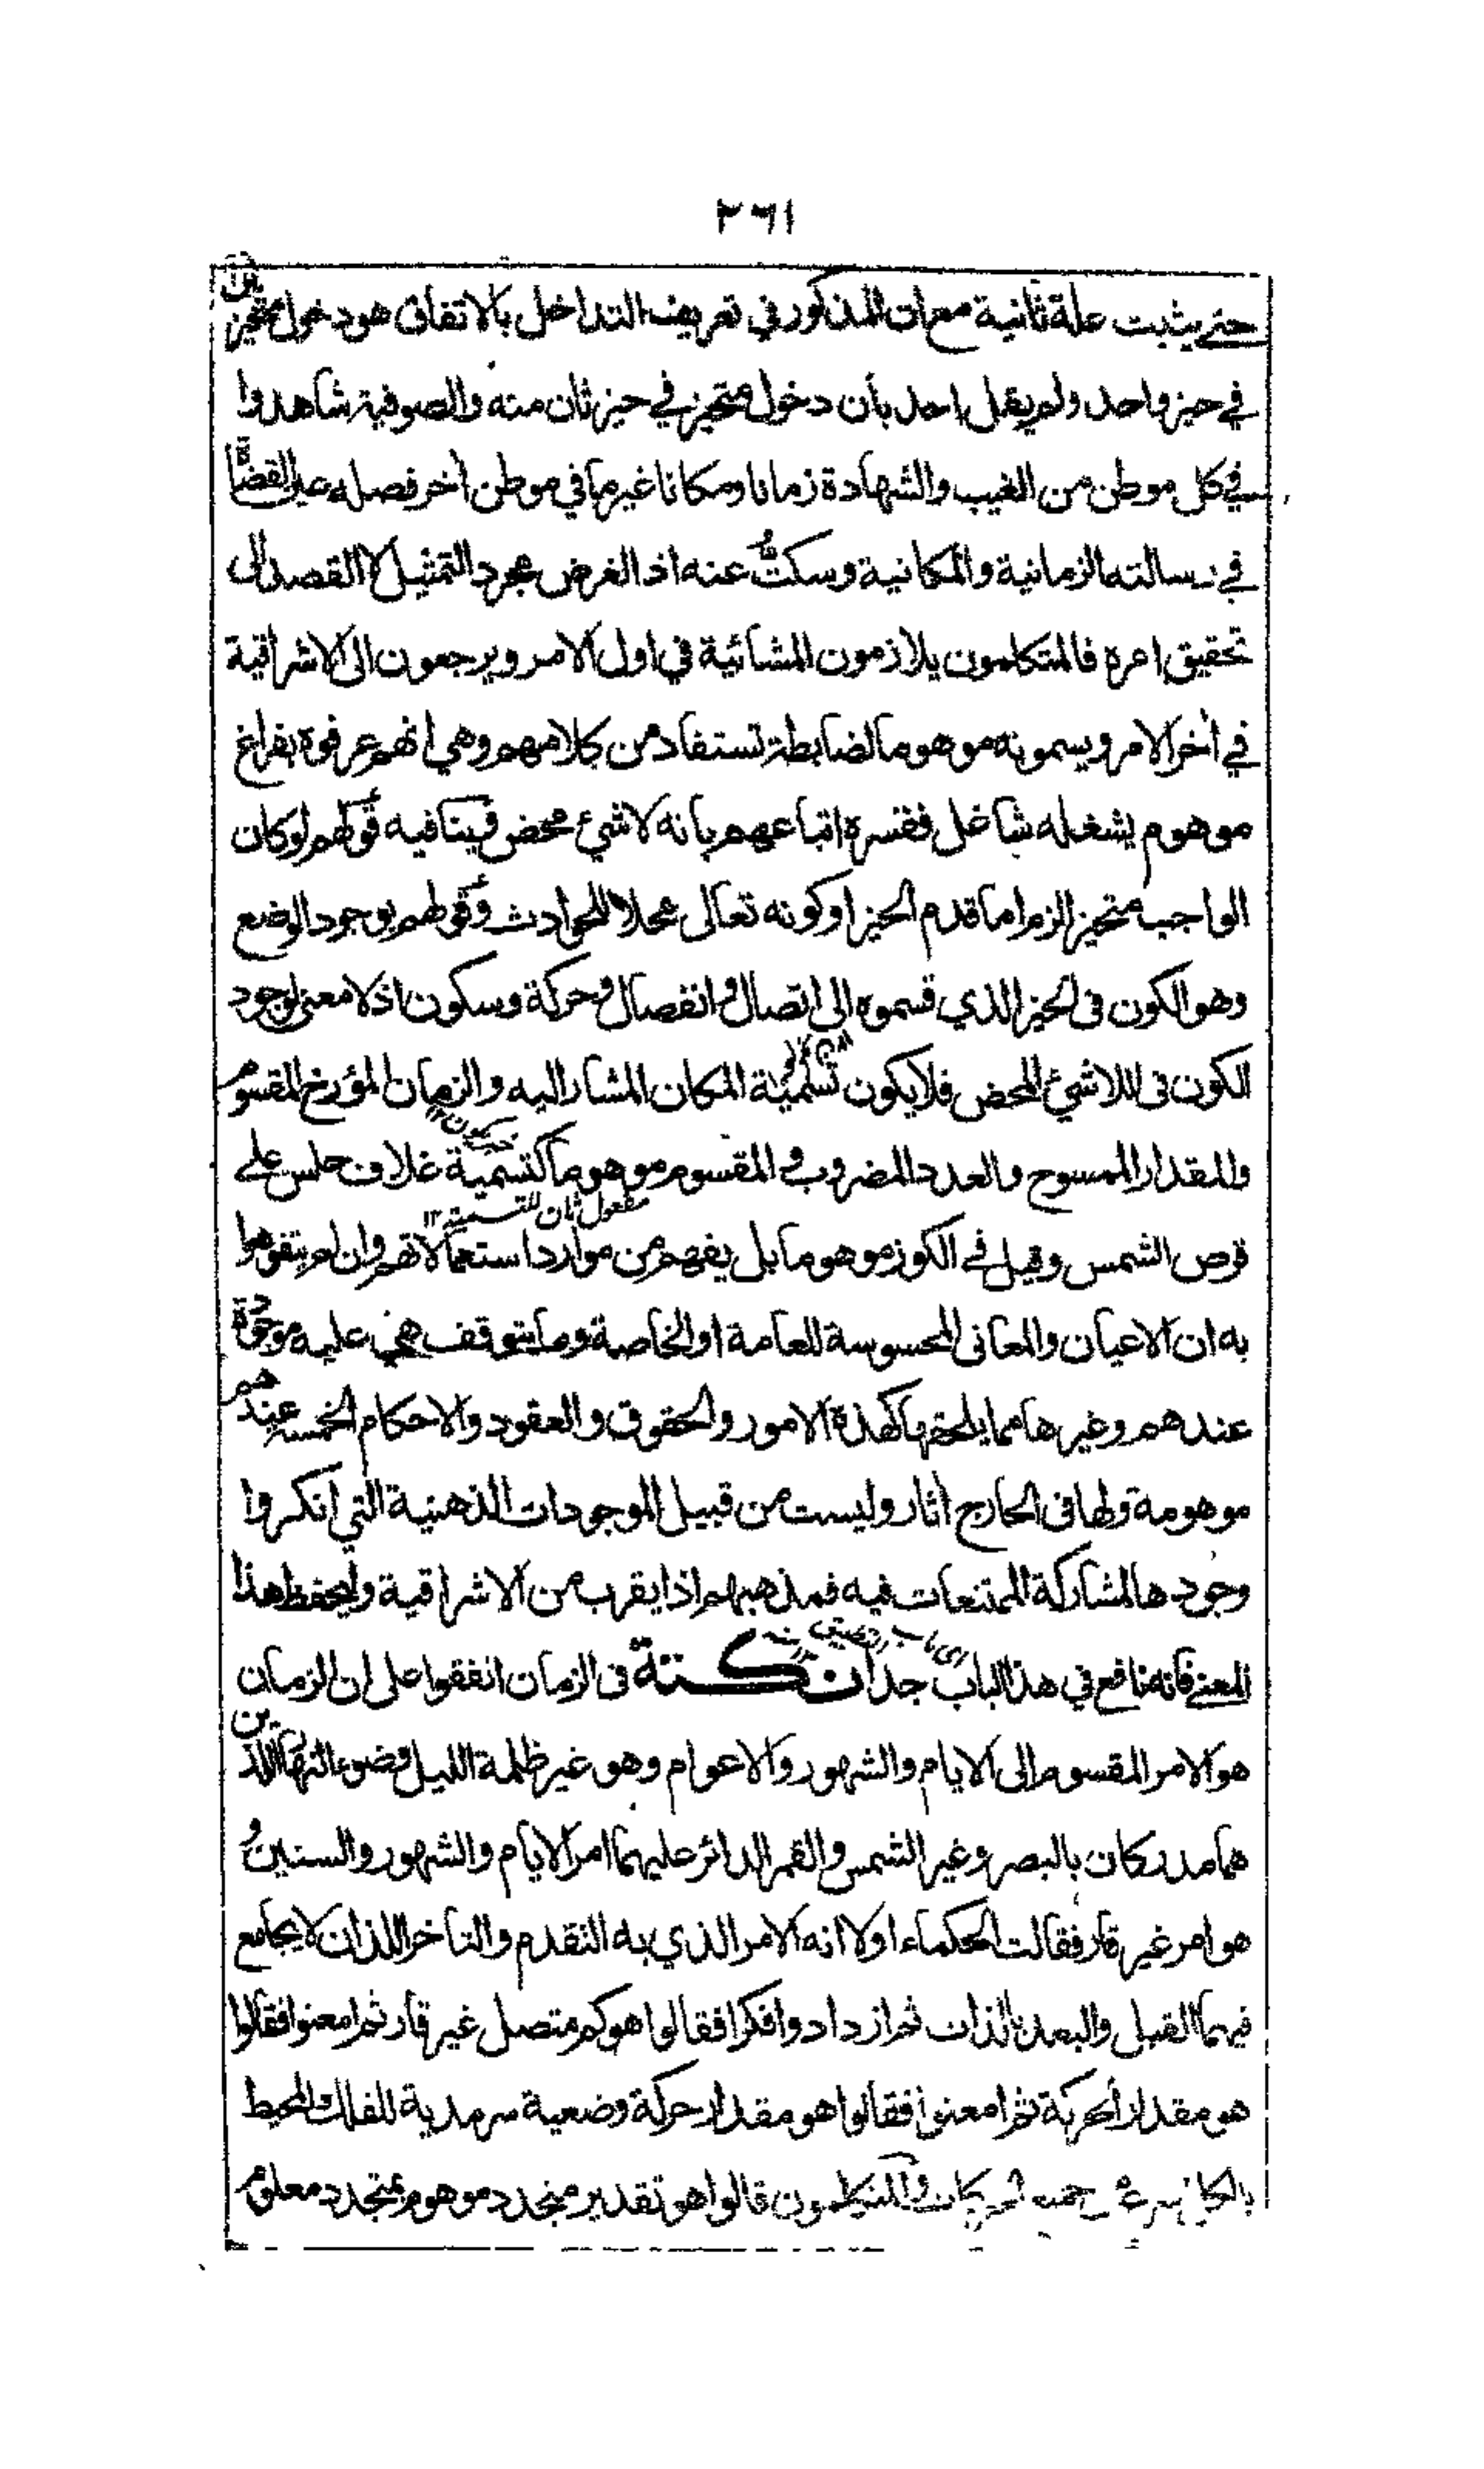 ٢٦١
حتى يثبت علة ثانية مع ان المذكور في تعريف التداخل بالاتفاق هو دخول متحيزين
في حيز واحد ولم يقل احد بأن دخول متحيز في حيز ثان منه والصوفية شاهدوا
في كل موطن من الغيب والشهادة زمانا ومكانا غير ما في موطن أخر فصله عين القضاة
في رسالته الزمانية والمكانية وسكتُّ عنه اذ الغرض مجرد التمثيل لا القصد الى
تحقيق امره فالمتكلمون يلازمون المشائية في اول الامر ويرجعون الى الاشراقية
في أخر الامر ويسمونه موهوما لضابطة تستفاد من كلامهم وهي انهم عرفوه بفراغ
موهوم يشغله شاغل ففسره اتباعهم بانه لا شيء محض فينافيه قولهم لو كان
الواجب متحيز الزم اما قدم الحيز او كونه تعالى محلا للحوادث وقولهم بوجود الوضع
وهو الكون فى الحيز الذي قسموه الى اتصال وانفصال وحركة وسكون اذ لا معنى لوجود
الكون فى اللاشيء المحض فلا يكون تسمية المكان المشار اليه والزمان المؤرخ المقسوم
والمقدار الممسوح والعدد المضروب والمقسوم موهوما كتسمية غلاف حلس على
مفعول ثان للتسمية ١٢
قرص الشمس وقيل في الكوز موهوما بل يفهم من موارد استعمالاتهم وان لم يتفوهوا
به ان الاعيان والمعانى المحسوسة للعامة او الخاصة وما يتوقف هي عليه موجودة
عندهم وغيرها مما يلحقها كهذه الامور والحقوق والعقود والاحكام الخمسة عندهم
موهومة ولها فى الخارج أثار وليست من قبيل الموجودات الذهنية التي انكروا
وجودها لمشاركة الممتنعات فيه فمذهبهم اذا يقرب من الاشراقية وليحفظ هذا
المعنى فانه نافع في هذا الباب جدا نكتة فى الزمان اتفقوا على ان الزمان
هو الامر المقسوم الى الايام والشهور والاعوام وهو غير ظلمة الليل وضوء النهار اللذين
هما مدركان بالبصر وغير الشمس والقمر الدائر عليهما امر الايام والشهور والسنين و
هو امر غير قار فقالت الحكماء اولا انه الامر الذي به التقدم والتاخر اللذان لا يجامع
فيهما القبل والبعد بالذات ثم ازدادوا فكرا فقالوا هو كم متصل غير قار ثم امعنوا فقالوا
هو مقدار الحركة ثم امعنوا فقالوا هو مقدار حركة وضعية سرمدية للفلك المحيط
بالكل جميع الحركات والمتكلمون قالوا هو تقدير متجدد موهوم بمتجدد معلوم